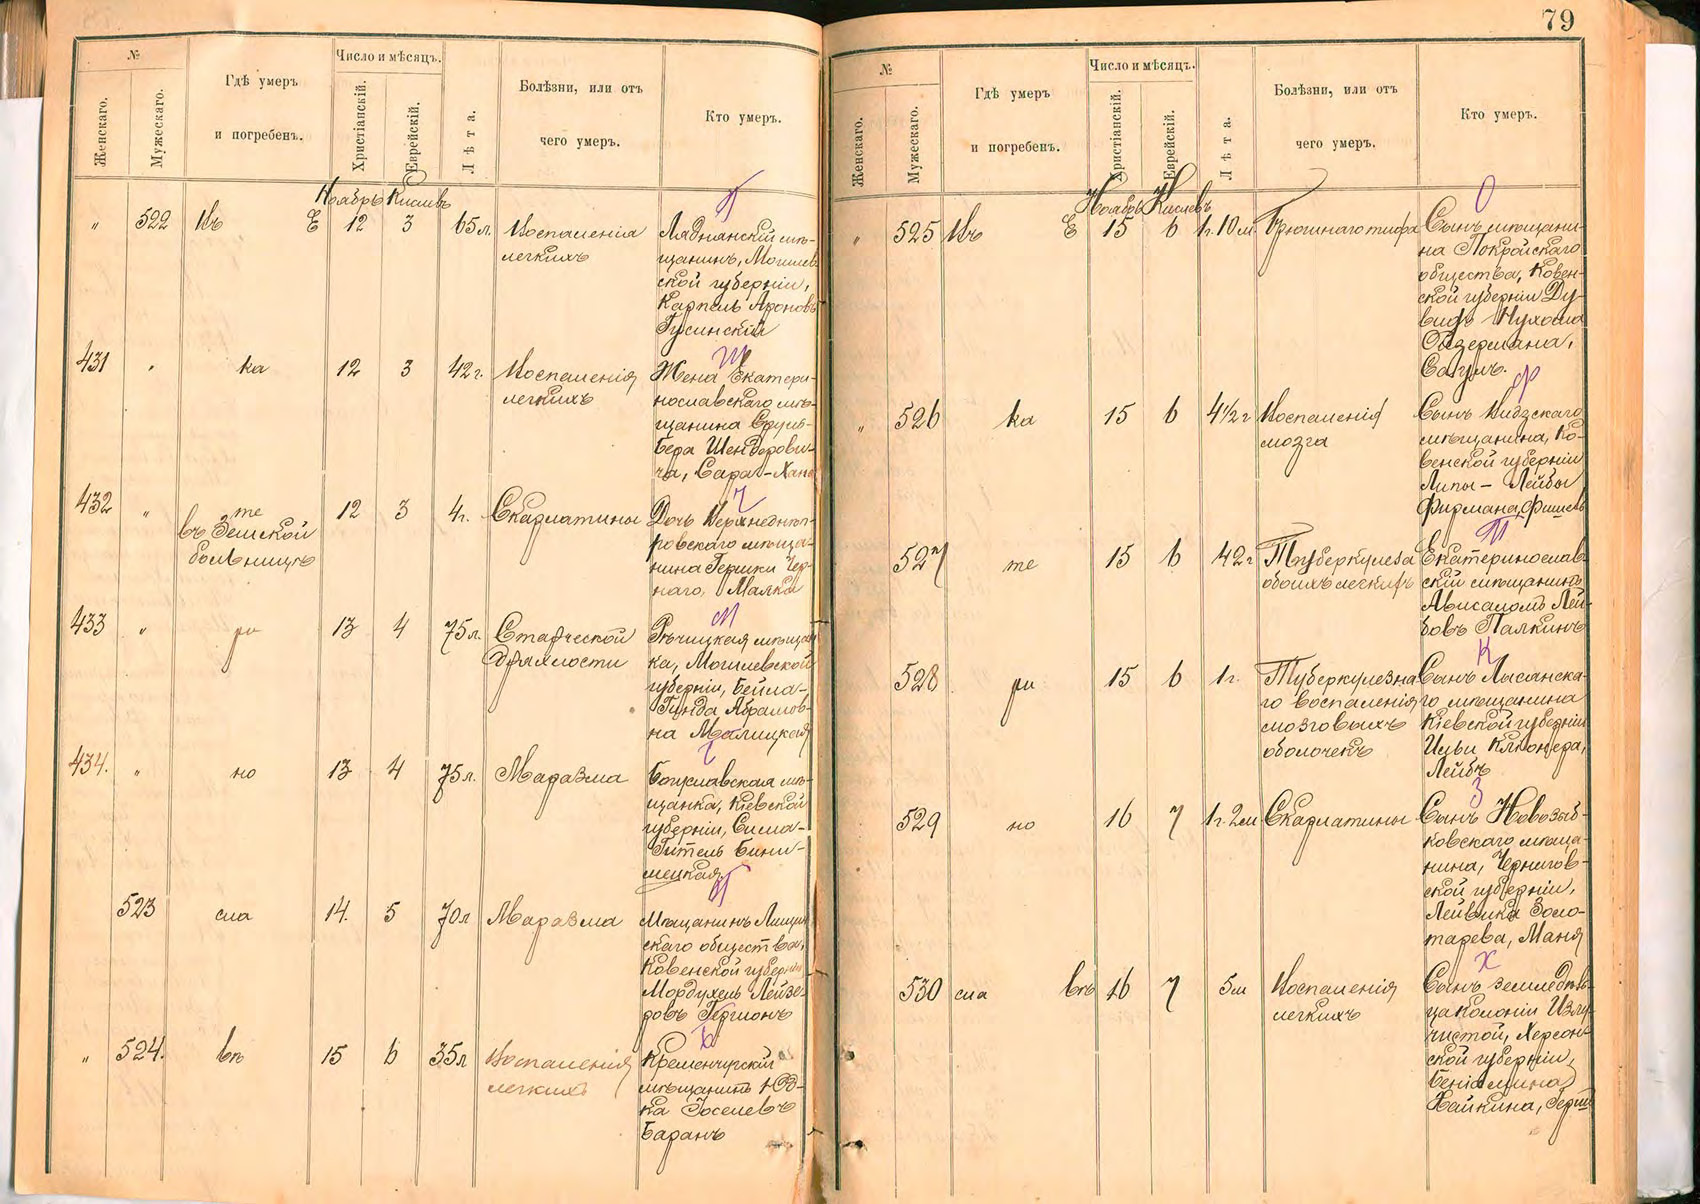 79
№
Женскаго.
Мужескаго.
Гдѣ умеръ
и погребенъ.
Число и мѣсяцъ.
Христіанскій.
Еврейскій.
Лѣта.
Болѣзни, или отъ
чего умеръ.
Кто умеръ.
Ноябрь Кислевъ
„ 522 Въ Е 12 3 65 л. Воспаленія
легкихъ
Ляднанскій мѣ-
щанинъ, Могилев
ской губерніи,
Карпель Ароновъ
Гусинскій
431 „ ка 12 3 42 г. Воспаленія
легкихъ
Жена Екатери-
нославскаго мѣ-
щанина Сруль-
Бера Шендерови-
ча, Сара-Хана
432 „ те
въ Земской
больницѣ
12 3 4 г. Скарлатины
Дочь Верхнеднѣп-
ровскаго мѣща-
нина Гершки Чер-
наго, Малка
433 „ ри 13 4 75 л. Старческой
дряхлости
Рѣчицкая мѣщан
ка, Могилевской
губерніи, Бейла-
Гинда Абрамов-
на Малицкая
434. „ но 13 4 75 л. Маразма
Богуславская мѣ-
щанка, Кіевской
губерніи, Сима-
Гитель Бини-
мецкая
523 сла 14. 5 70 л Маразма
Мѣщанинъ
скаго общества,
Ковенской губерніи
Мордухель Лейзе-
ровъ Гершонъ
„ 524. въ 15 6 35 л Воспаленія
легкихъ
Кременчугскій
мѣщанинъ
ка Іоселевъ
Баранъ
№
Женскаго.
Мужескаго.
Гдѣ умеръ
и погребенъ.
Число и мѣсяцъ.
Христіанскій.
Еврейскій.
Лѣта.
Болѣзни, или отъ
чего умеръ.
Кто умеръ.
Ноябрь Кислевъ
„ 525 Въ Е 15 6 1 г. 10 м. Брюшнаго тифа
Сынъ мѣщани-
на Покройскаго
общества, Ковен-
ской губерніи Ду-
видъ Нухома
Озермана,
Саулъ.
„ 526 ка 15 6 4 1/2 г Воспаленія
мозга
Сынъ Видзскаго
мѣщанина, Ко-
венской губерніи
Липы-Лейбы
Фирмана, Фишель
527 те 15 6 42 г Туберкулеза
обоихъ легкихъ
Екатеринослав-
скій мѣщанинъ
Ависаломъ Лей-
бовъ Палкинъ
528 ри 15 6 1 г. Туберкулезна
го воспаленія
мозговыхъ
оболочекъ
Сынъ Лысянска-
го мѣщанина
Кіевской губерніи
Цыви
Лейбъ
529 но 16 7 1 г. 2 м Скарлатины
Сынъ Новозыб-
ковскаго мѣща-
нина, Чернигов-
ской губерніи,
Лейвика Золо-
тарева, Маня
530 сла въ 16 7 5 м Воспаленія
легкихъ
Сынъ земледѣль-
ца колоніи Излу-
чистой, Херсон-
ской губерніи,
Беніамина
Хайкина, Герш